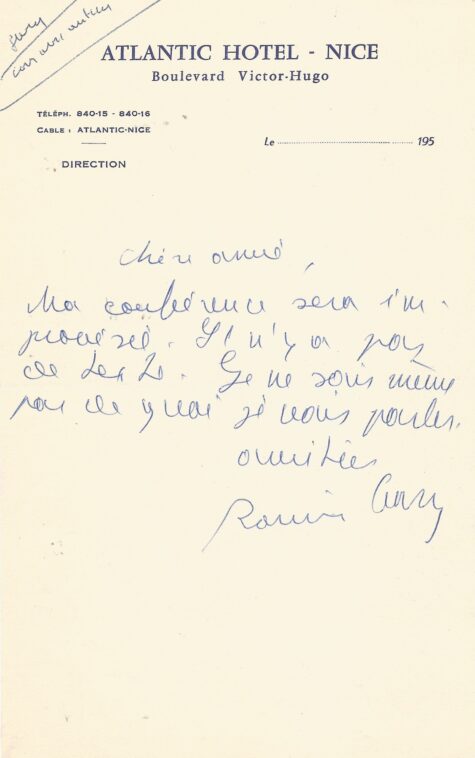 Gary
ATLANTIC HOTEL - NICE
Boulevard Victor-Hugo
TÉLÉPH. 840-15 - 840-16
CABLE : ATLANTIC-NICE
Le ........................ 195
DIRECTION
Chère amie,
Ma conférence sera im-
provisée. Il n'y a pas
de texte. Je ne sais même
pas de quoi je vais parler.
amitiés
Romain Gary